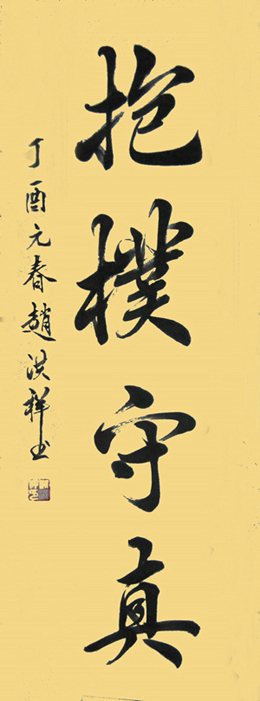 抱樸守真
丁酉元春趙洪祥书